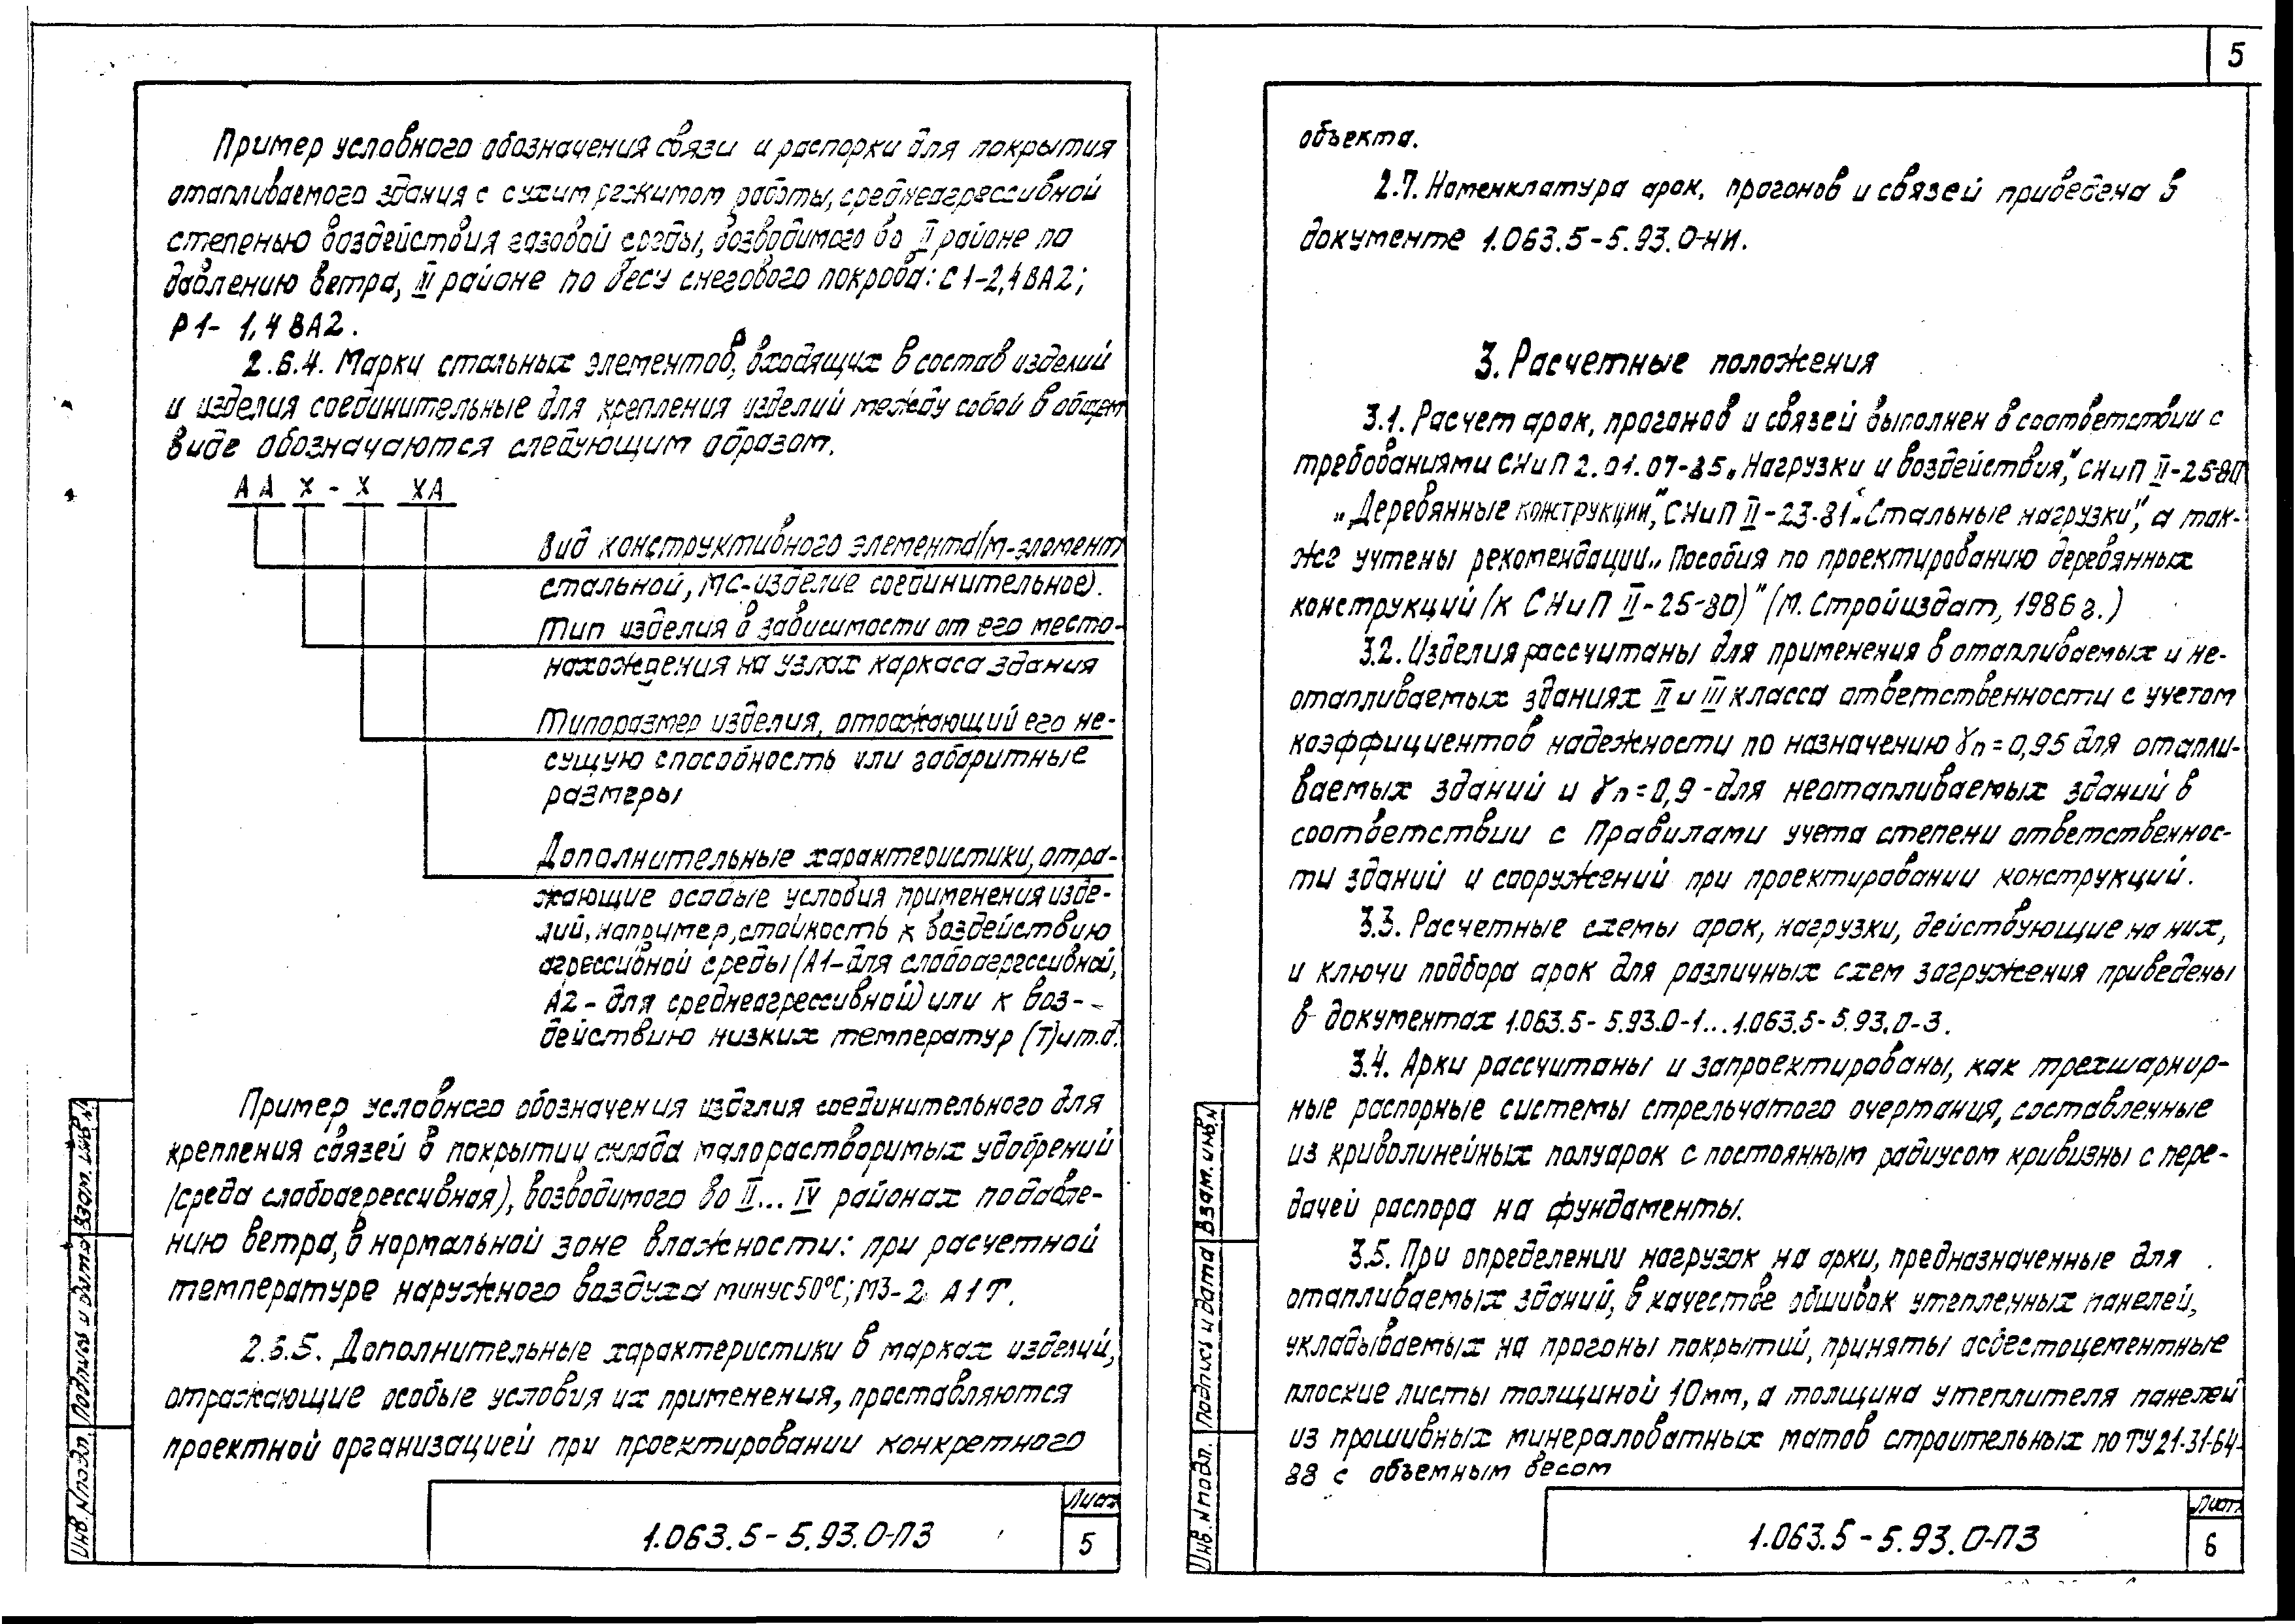 5
Пример условного обозначения связи и распорки для покрытия
отапливаемого здания с сухим режимом работы, среднеагрессивной
степенью воздействия газовой среды, возводимого во II районе по
давлению ветра, III районе по весу снегового покрова: С1-2,4ВА2;
Р1- 1,4 ВА2.
2.6.4. Марки стальных элементов, входящих в состав изделий
и изделия соединительные для крепления изделий между собой в общем
виде обозначаются следующим образом.
АА Х - Х ХА
Вид конструктивного элемента (М-элемент
стальной, МС-изделие соединительное).
Тип изделия в зависимости от его место-
нахождения на узлах каркаса здания
Типоразмер изделия, отражающий его не-
сущую способность или габаритные
размеры
Дополнительные характеристики, отра-
жающие особые условия применения изде-
лий, например, стойкость к воздействию
агрессивной среды (А1-для слабоагрессивной,
А2 - для среднеагрессивной) или к воз-
действию низких температур (Т) и т.д.
Пример условного обозначения изделия соединительного для
крепления связей в покрытии склада малорастворимых удобрений
(среда слабоагрессивная), возводимого во II... IV районах по давле-
нию ветра, в нормальной зоне влажности: при расчетной
температуре наружного воздуха минус 50°С; М3-2 А1Т.
2.6.5. Дополнительные характеристики в марках изделий,
отражающие особые условия их применения, проставляются
проектной организацией при проектировании конкретного
Инв. N подл. Подпись и дата Взам. инв. N
1.063.5-5.93.0-ПЗ
Лист
5
объекта.
2.7. Номенклатура арок, прогонов и связей приведена в
документе 1.063.5-5.93.0-НИ.
3. Расчетные положения
3.1. Расчет арок, прогонов и связей выполнен в соответствии с
требованиями СНиП 2.01.07-85 „Нагрузки и воздействия," СНиП II-25-80
„Деревянные конструкции," СНиП II-23-81 „Стальные нагрузки", а так-
же учтены рекомендации „Пособия по проектированию деревянных
конструкций (к СНиП II-25-80)" (М. Стройиздат, 1986 г.)
3.2. Изделия рассчитаны для применения в отапливаемых и не-
отапливаемых зданиях II и III класса ответственности с учетом
коэффициентов надежности по назначению γn=0,95 для отапли-
ваемых зданий и γn=0,9 - для неотапливаемых зданий в
соответствии с Правилами учета степени ответственнос-
ти зданий и сооружений при проектировании конструкций.
3.3. Расчетные схемы арок, нагрузки, действующие на них,
и ключи подбора арок для различных схем загружения приведены
в документах 1.063.5-5.93.0-1...1.063.5-5.93.0-3.
3.4. Арки рассчитаны и запроектированы, как трехшарнир-
ные распорные системы стрельчатого очертания, составленные
из криволинейных полуарок с постоянным радиусом кривизны с пере-
дачей распора на фундаменты.
3.5. При определении нагрузок на арки, предназначенные для
отапливаемых зданий, в качестве обшивок утепленных панелей,
укладываемых на прогоны покрытий, приняты асбестоцементные
плоские листы толщиной 10мм, а толщина утеплителя панелей
из прошивных минераловатных матов строительных по ТУ 21-31-64-
88 с объемным весом
Инв. N подл. Подпись и дата Взам. инв. N
1.063.5-5.93.0-ПЗ
Лист
6